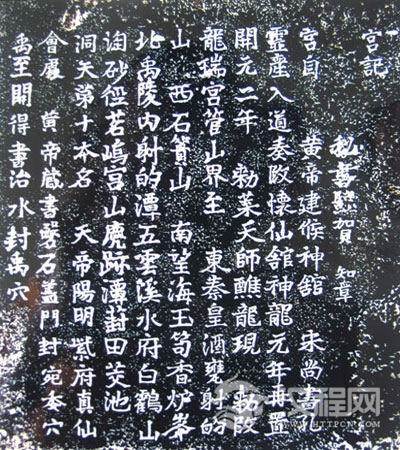 宮記
秘書監賀 知章
宮自 黃帝建候神館 宋尚書孔
靈產入道奏改懷仙館神龍元年再置
開元二年 敕葉天師醮龍現 敕改
龍瑞宮管山界至 東秦皇酒甕射的
山 西石簣山 南望海玉笥香炉峯
北禹陵内射的潭五雲溪水府白鶴山
淘砂徑茗塢宮山鹿跡潭葑田茭池
洞天第十本名 天帝陽明紫府真仙
會處 黃帝藏書磐石蓋門封宛委穴
禹至開得書治水封禹穴
汉程网
HTTPCN.COM